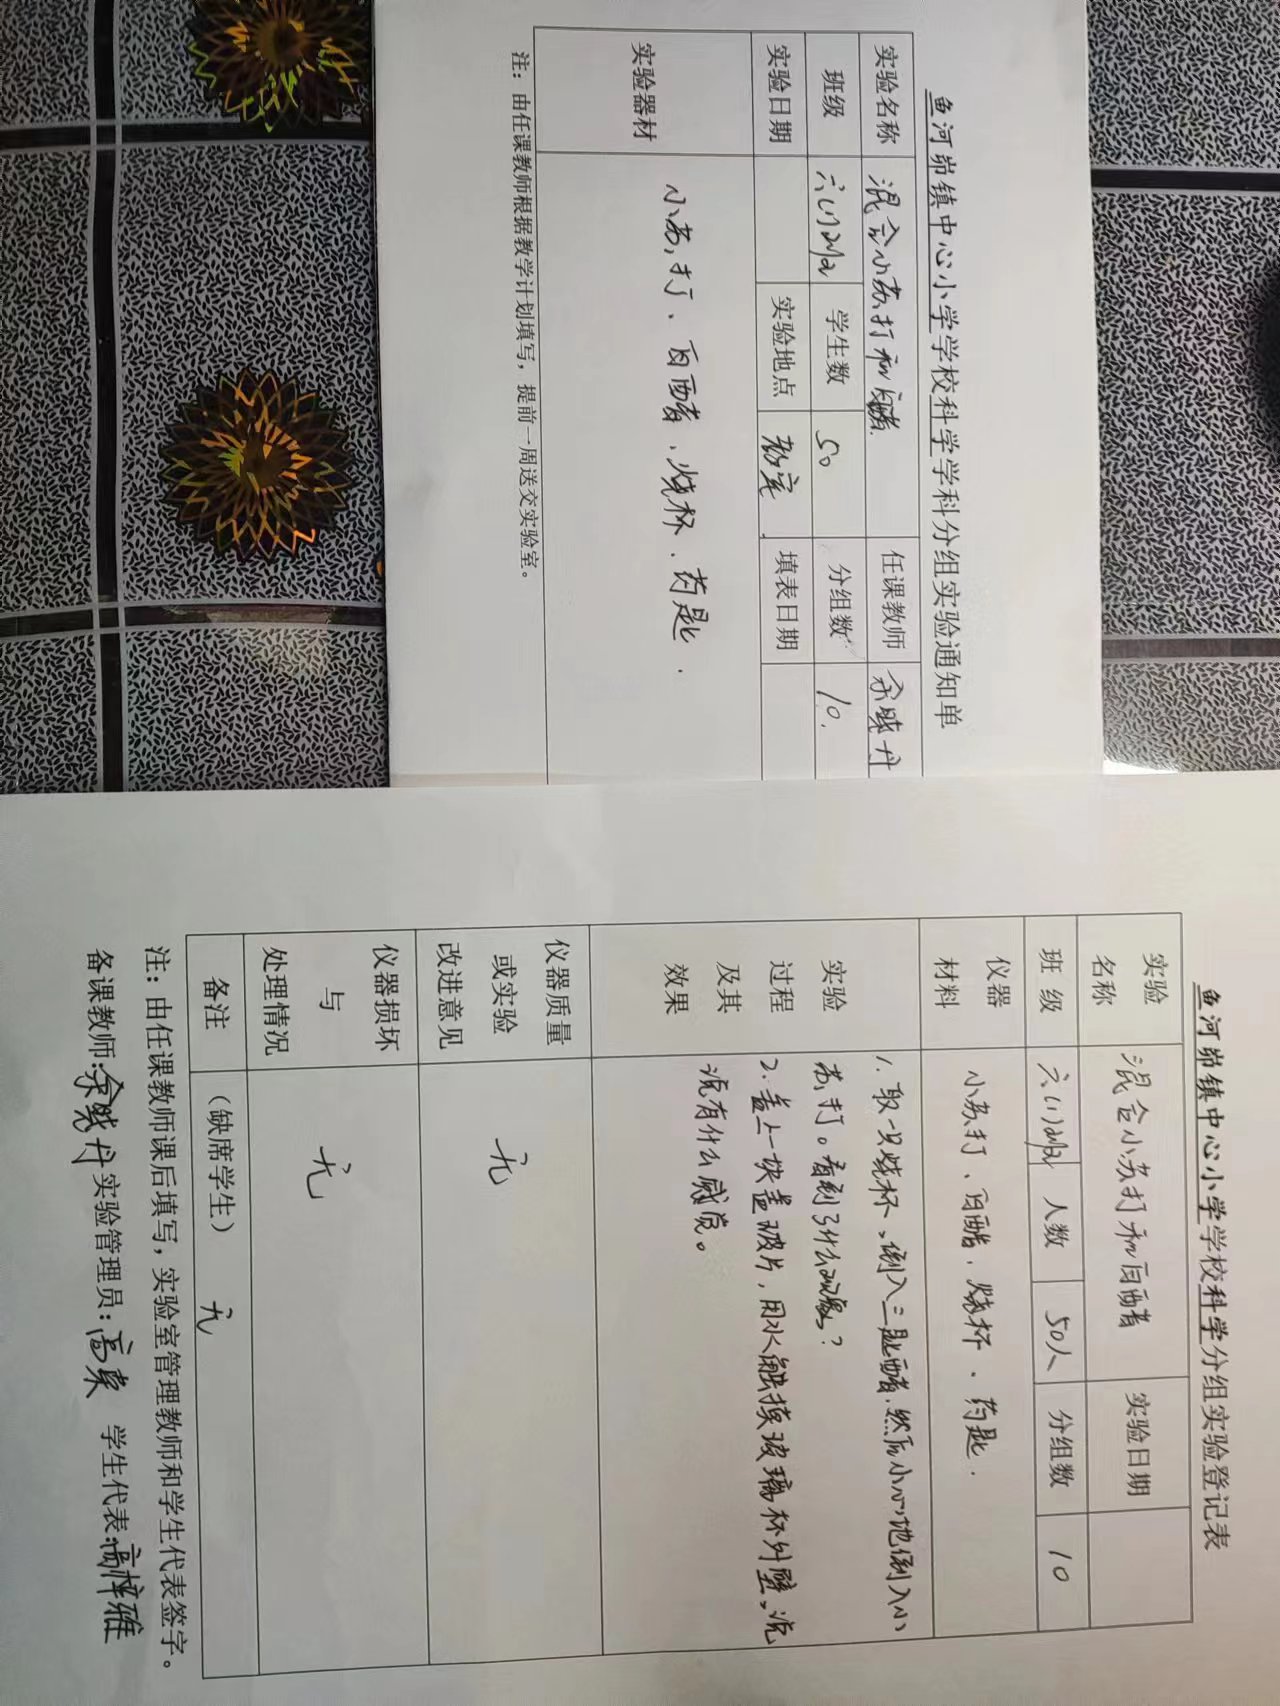 鱼河峁镇中心小学学校科学学科分组实验通知单
实验名称 混合小苏打和白醋 任课教师 余晓丹
班级 六(1)班 学生数 50 分组数 10.
实验日期 实验地点 教室 填表日期
实验器材 小苏打、白醋、烧杯、药匙.
注：由任课教师根据教学计划填写，提前一周送交实验室。
鱼河峁镇中心小学学校科学分组实验登记表
实验名称 混合小苏打和白醋 实验日期
班级 六(1)班 人数 50人 分组数 10
仪器材料 小苏打、白醋、烧杯、药匙.
实验过程及其效果
1. 取一只烧杯，倒入三匙醋，然后小心地倒入小
苏打。看到了什么现象？
2. 盖上一块盖玻片，用水触摸玻璃杯外壁，说
说有什么感觉。
仪器质量或实验改进意见 无
仪器损坏与处理情况 无
备注 （缺席学生） 无
注：由任课教师课后填写，实验室管理教师和学生代表签字。
备课教师：余晓丹 实验管理员：高柰 学生代表：高梓雅